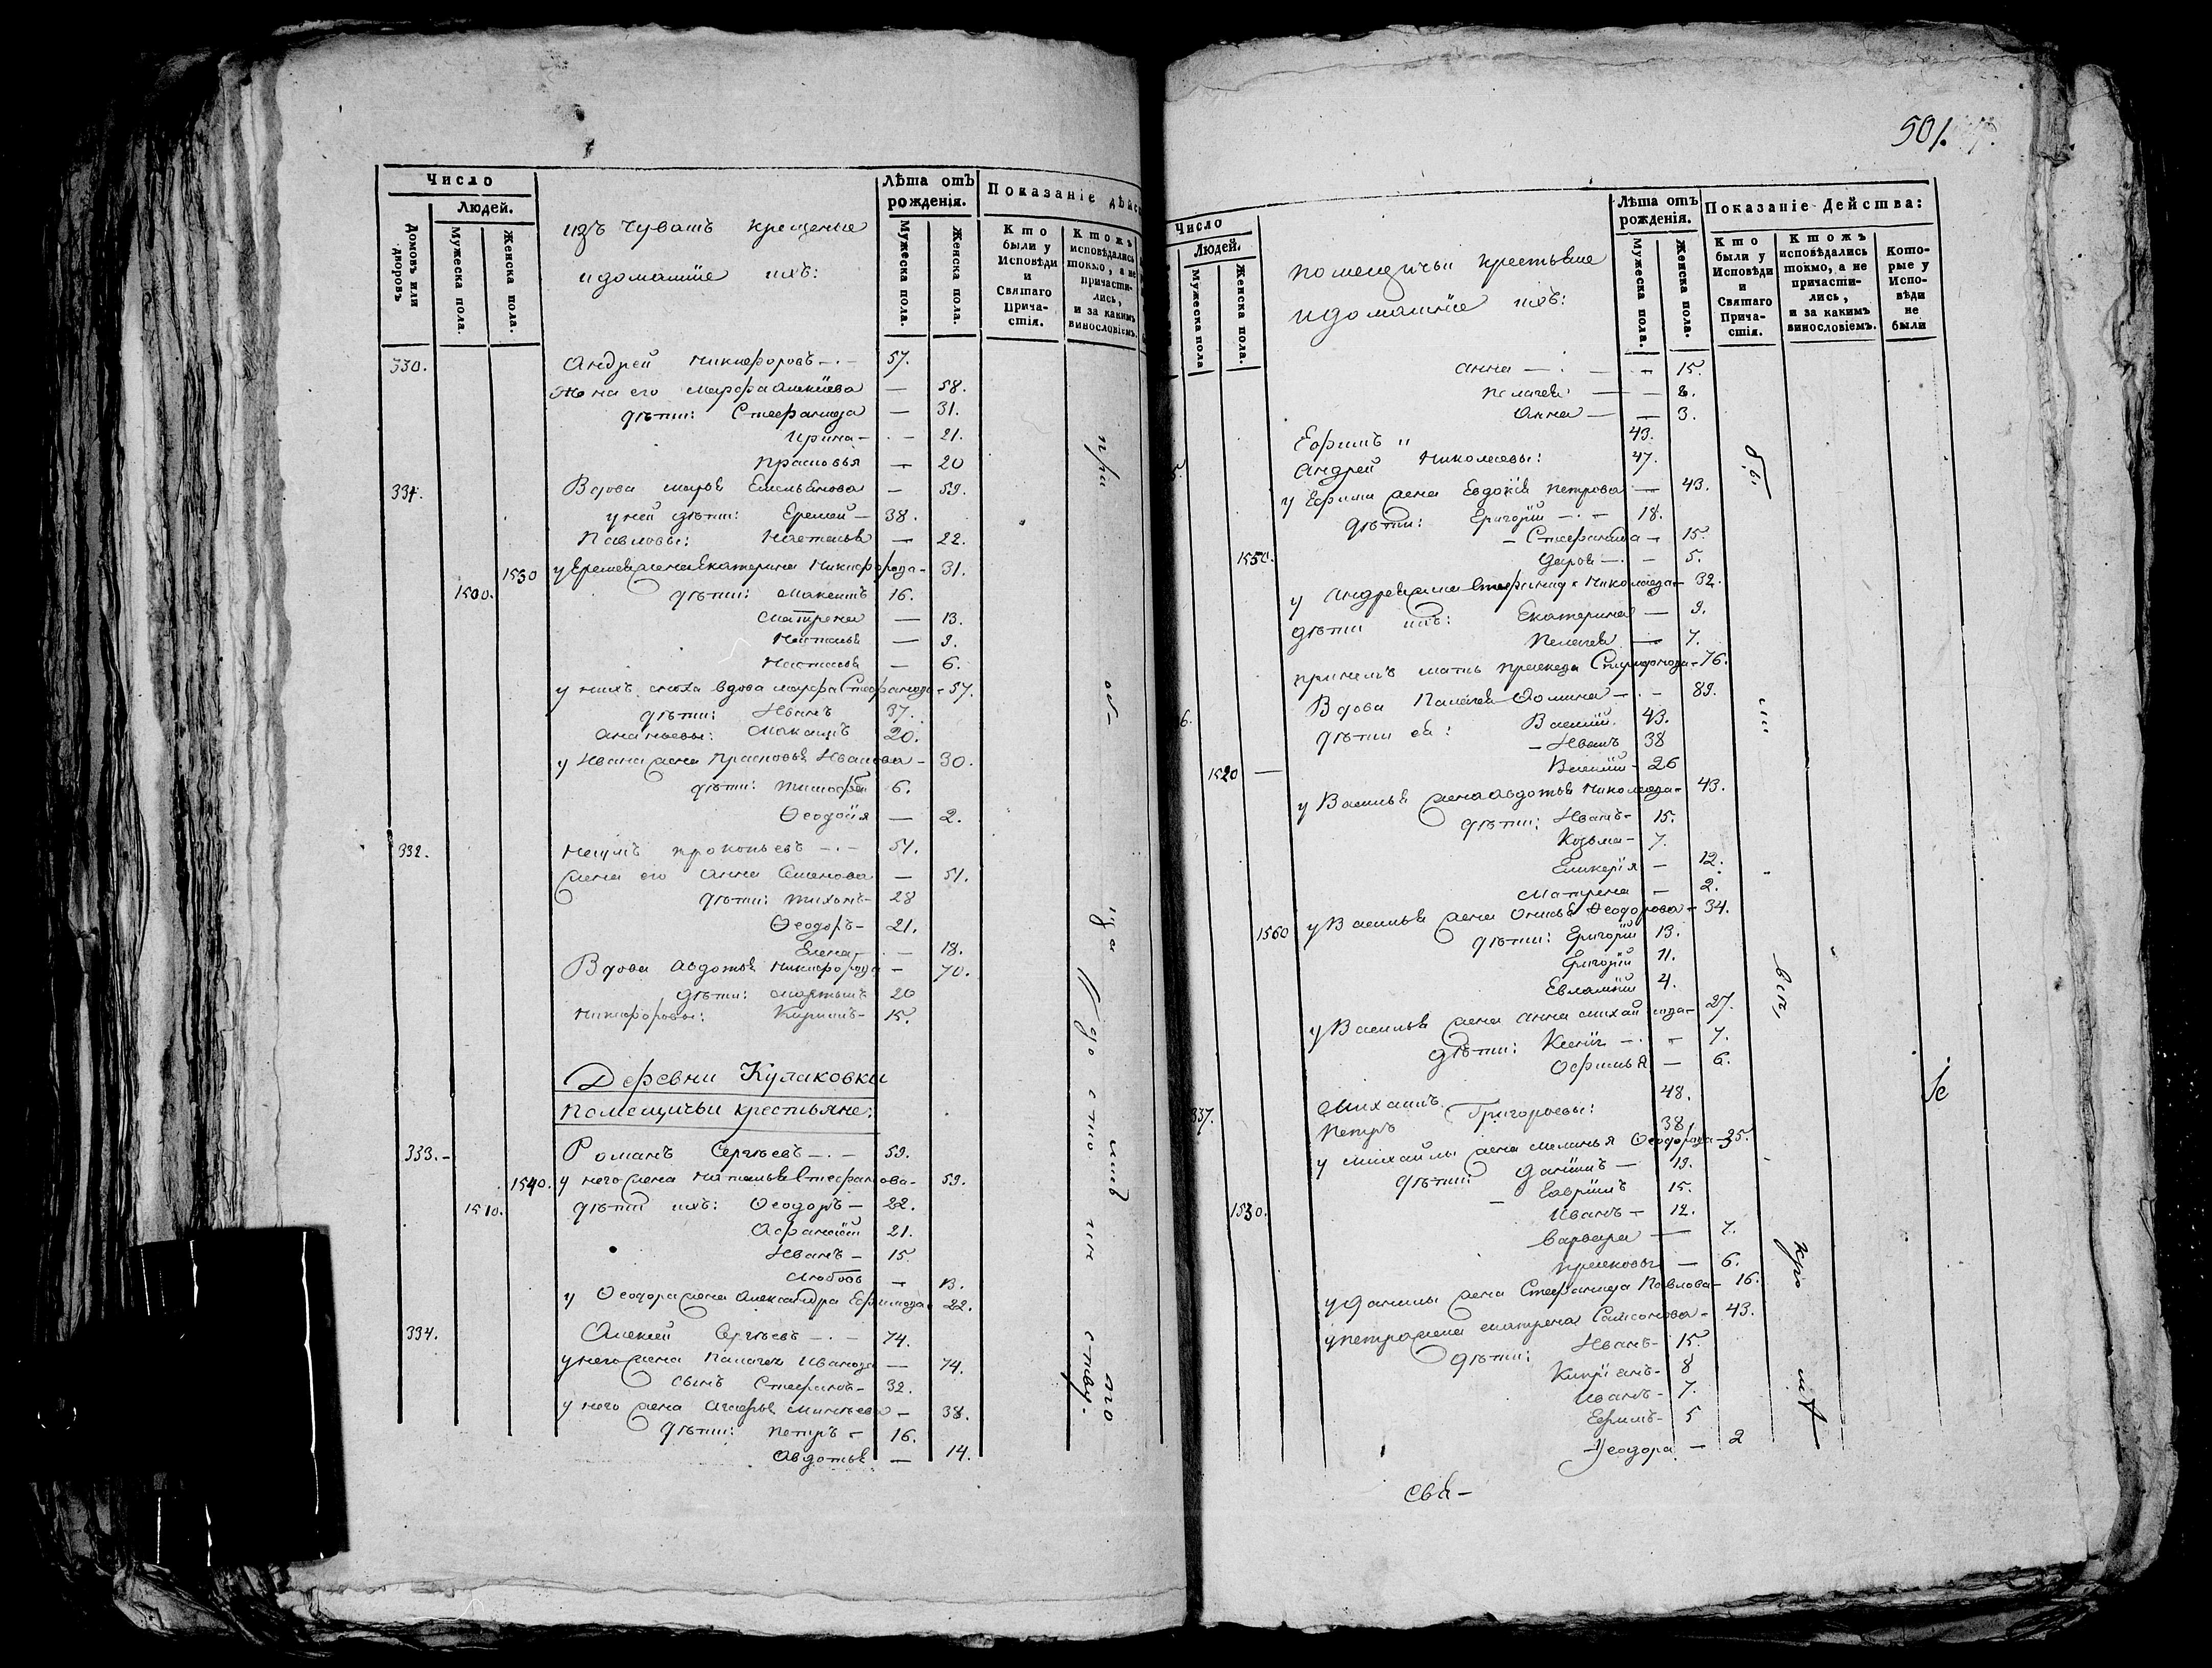 Число
Людей.
Домовъ или дворовъ
Мужеска пола.
Женска пола.
изъ Чувашъ крещеные
и домашніе ихъ:
Лѣта отъ рожденія.
Мужеска пола.
Женска пола.
Показаніе дѣйс
Кто были у Исповѣди и Святаго Прича-стія.
Ктожъ исповѣдались токмо, а не причасти-лись, и за какимъ винословіемъ.
330. Андрей Никифоровъ - 57.
Жена его Марфа Алексіева — 58.
дѣти: Стефанида — 31.
Ирина - - 21.
Прасковья — 20
331. Вдова Марья Емельянова — 59.
у ней дѣти: Еремей — 38.
Павловы: Наталья — 22.
1530 у Еремея жена Екатерина Никифорова - 31.
1500. дѣти: 16.
Матрена — 13.
Наталья — 9.
Настасья — 6.
у нихъ сноха вдова Марфа Стефанова - 57.
дѣти: Иванъ 37.
Ананьевы: 20.
у Ивана жена Прасковья Иванова - 30.
дѣти: Тимофей 6.
Ѳеодосія — 2.
332. Наумъ Прокопьевъ - 51.
жена его Анна Семенова — 51.
дѣти: Тихонъ - 28
Ѳеодоръ - 21.
Елена - - 18.
Вдова Авдотья Никифорова — 70.
дѣти: Мартынъ 20
Никифоровы: Кирилъ - 15.
Деревни Кулаковки
Помещичьи крестьяне:
333. - Романъ Сергѣевъ - 59.
1540. у него жена Наталья Стефанова - 59.
1510. дѣти ихъ: Ѳеодоръ — 22.
Афанасій 21.
Иванъ - 15
Любовь — 13.
у Ѳеодора жена Александра Ефимова - 22.
334. Алексей Сергѣевъ - 74.
у него жена Палагея Иванова — 74.
сынъ Стефанъ - 32.
у него жена Агафья — 38.
дѣти: Петръ - 16.
Авдотья — 14.
501.
Число
Людей.
Мужеска пола
Женска пола.
помещичьи крестьяне
и домашніе ихъ:
Лѣта отъ рожденія.
Мужеска пола.
Женска пола.
Показаніе Действа:
Кто были у Исповѣди и Святаго Прича-стія.
Ктожъ исповѣдались токмо, а не причасти-лись, и за какимъ винословіемъ.
Кото-рые у Испо-вѣди не были
Анна — - 15.
Пелагея — — 8.
Анна — — 3.
Ефимъ " 43.
Андрей Николаевы: 47.
у Ефима жена Евдокія Петрова — 43.
дѣти: Григорій - 18.
- Стефанида - 15.
1550. Дарья — - 5.
у Андрея жена Стефанида Николаева - 32.
дѣти ихъ: Екатерина — 9.
Пелагея — 7.
при немъ мать Спиридонова - 76.
6. Вдова Палагея Фомина - - 89.
дѣти ея: Василій 43.
- Иванъ 38
1520 — Василій - 26
у Василья жена Авдотья Николаева - 43.
дѣти: Иванъ - 15.
Козьма - 7.
Гликерія - 12.
Матрена - 2.
1560 у Василья жена Ѳеодорова - 34.
дѣти: Григорій 13.
Григорій 11.
Евлампій 4.
у Василья жена Анна Михайлова - 27.
дѣти: Ксенія - - 7.
Офимья — 6.
337. Михаилъ 48.
Петръ Григорьевы: 38.
у Михайлы жена Меланья Ѳеодорова - 35.
дѣти: Данилъ — 19.
- Гаврилъ 15.
1530. Иванъ - 12.
Варвара — 7.
Прасковья — 6.
у Данилы жена Стефанида Павлова - 16.
у Петра жена Матрена Самсонова - 43.
дѣти: Иванъ - 15.
Кипріянъ - 8
Иванъ - 7.
Ефимъ - 5
Ѳеодора — 2
свя-